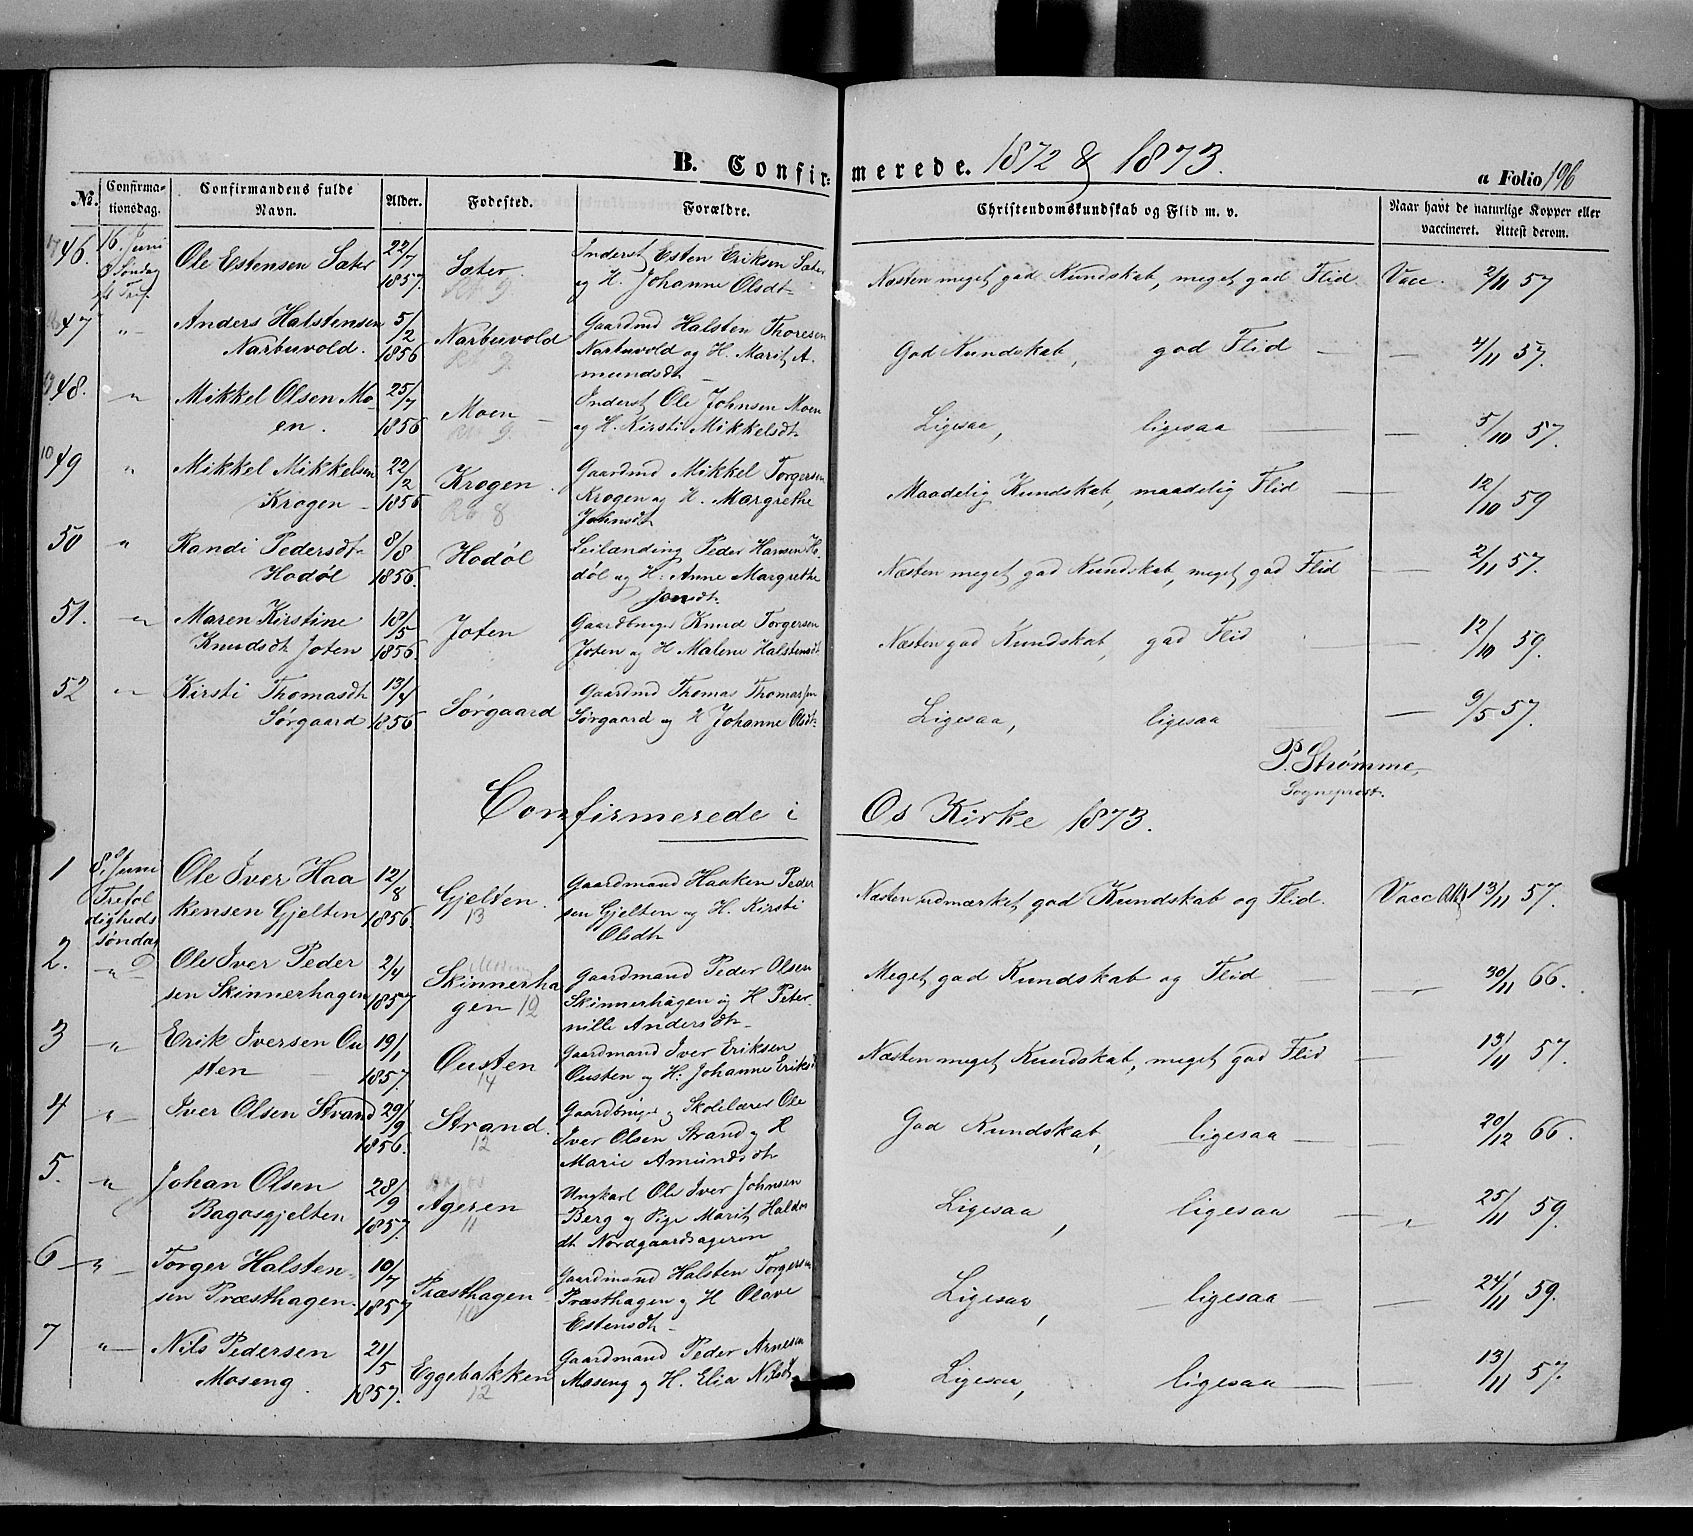 B. Confirmerede. 1872 & 1873.
a Folio 196
No. Confirmationsdag. Confirmandens fulde Navn. Alder. Fødested. Forældre. Christendomskundskab og Flid m. v. Naar havt de naturlige Kopper eller vaccineret. Attest derom.
46. 16. Juni Ole Estensen Sæter 22/7 Sæter. Inderst Esten Eriksen Sæter Næsten meget god Kundskab, meget god Flid Vacc. 2/11 57
3 Søndag eft Tref. 1857. og H. Johanne Olsdt
47 " Anders Halstensen 5/2 Narbuvold Gaardmd Halsten Thoresen God Kundskab, god Flid — 4/11 57.
Narbuvold. 1856 Narbuvold og H. Marit A-
mundsdt
48. " Mikkel Olsen Mo- 25/7 Moen Inderst Ole Johnsen Moen Ligesaa, ligesaa — 5/10 57.
en. 1856 og H. Kirsti Mikkelsdt
49 " Mikkel Mikkelsen 22/2 Krogen Gaardmd Mikkel Torgersen Maadelig Kundskab, maadelig Flid — 12/10 59
Krogen 1856 Krogen og H. Margrethe
Johnsdt
50 " Randi Pedersdt 8/8 Hodøl Leilænding Peder Hansen Ho- Næsten meget god Kundskab, meget god Flid — 2/11 57.
Hodøl 1856. døl og H. Anne Margrethe
Jonsdt.
51. " Maren Kirstine 18/5 Joten Gaardbruger Knud Torgersen Næsten god Kundskab, god Flid — 12/10 59.
Knudsdt Joten 1856. Joten og H Malene Halstensdt
52 " Kirsti Thomasdt 13/4 Sørgaard Gaardmd Thomas Thomassen Ligesaa, ligesaa — 9/5 57.
Sørgaard 1856 Sørgaard og H Johanne Olsdt
P. Strømme,
Sogneprest.
Confirmerede i Os Kirke 1873.
1 8. Juni Ole Iver Haa 12/8 Gjelten. Gaardmand Haaken Peder Næsten udmærket god Kundskab og Flid. Vacc 13/11 57.
Trefoldigheds søndag kensen Gjelten 1856. 13 sen Gjelten og H. Kirsti
Olsdt
2. " Ole Iver Peder 2/4 Skinnerha Gaardmand Peder Olsen Meget god Kundskab og Flid — " 30/11 66.
sen Skinnerhagen 1857 gen 12 Skinnerhagen og H Peter-
nille Andersdt
3 " Erik Iversen Ou 19/1 Ousten Gaardmand Iver Eriksen Næsten meget Kundskab, meget god Flid — 13/11 57.
sten 1857. 14 Ousten og H: Johanne Eriksd
4 " Iver Olsen Strand 29/9 Strand. Gaardbruger og Skolelærer Ole God Kundskab, ligesaa — 20/12 66.
1856. 12 Iver Olsen Strand og H
Marie Amundsdt
5. " Johan Olsen 28/9 Ageren Ungkarl Ole Iver Johnsen Ligesaa, ligesaa — " 25/11 59.
Bagosgjelten 1857. 11 Berg og Pige Marit Haldor
dt Nordgaardsageren
6 " Torger Halsten- 10/7 Præsthagen Gaardmand Halsten Torgersen Ligesaa, ligesaa — 24/11 59.
sen Præsthagen. 1857 10 Præsthagen og H Olave
Estensdt
7 " Nils Pedersen 21/5 Eggebakken Gaardmand Peder Arnesen Ligesaa, ligesaa — 13/11 57.
Moseng. 1857. 12 Moseng og H. Elia Nilsdt